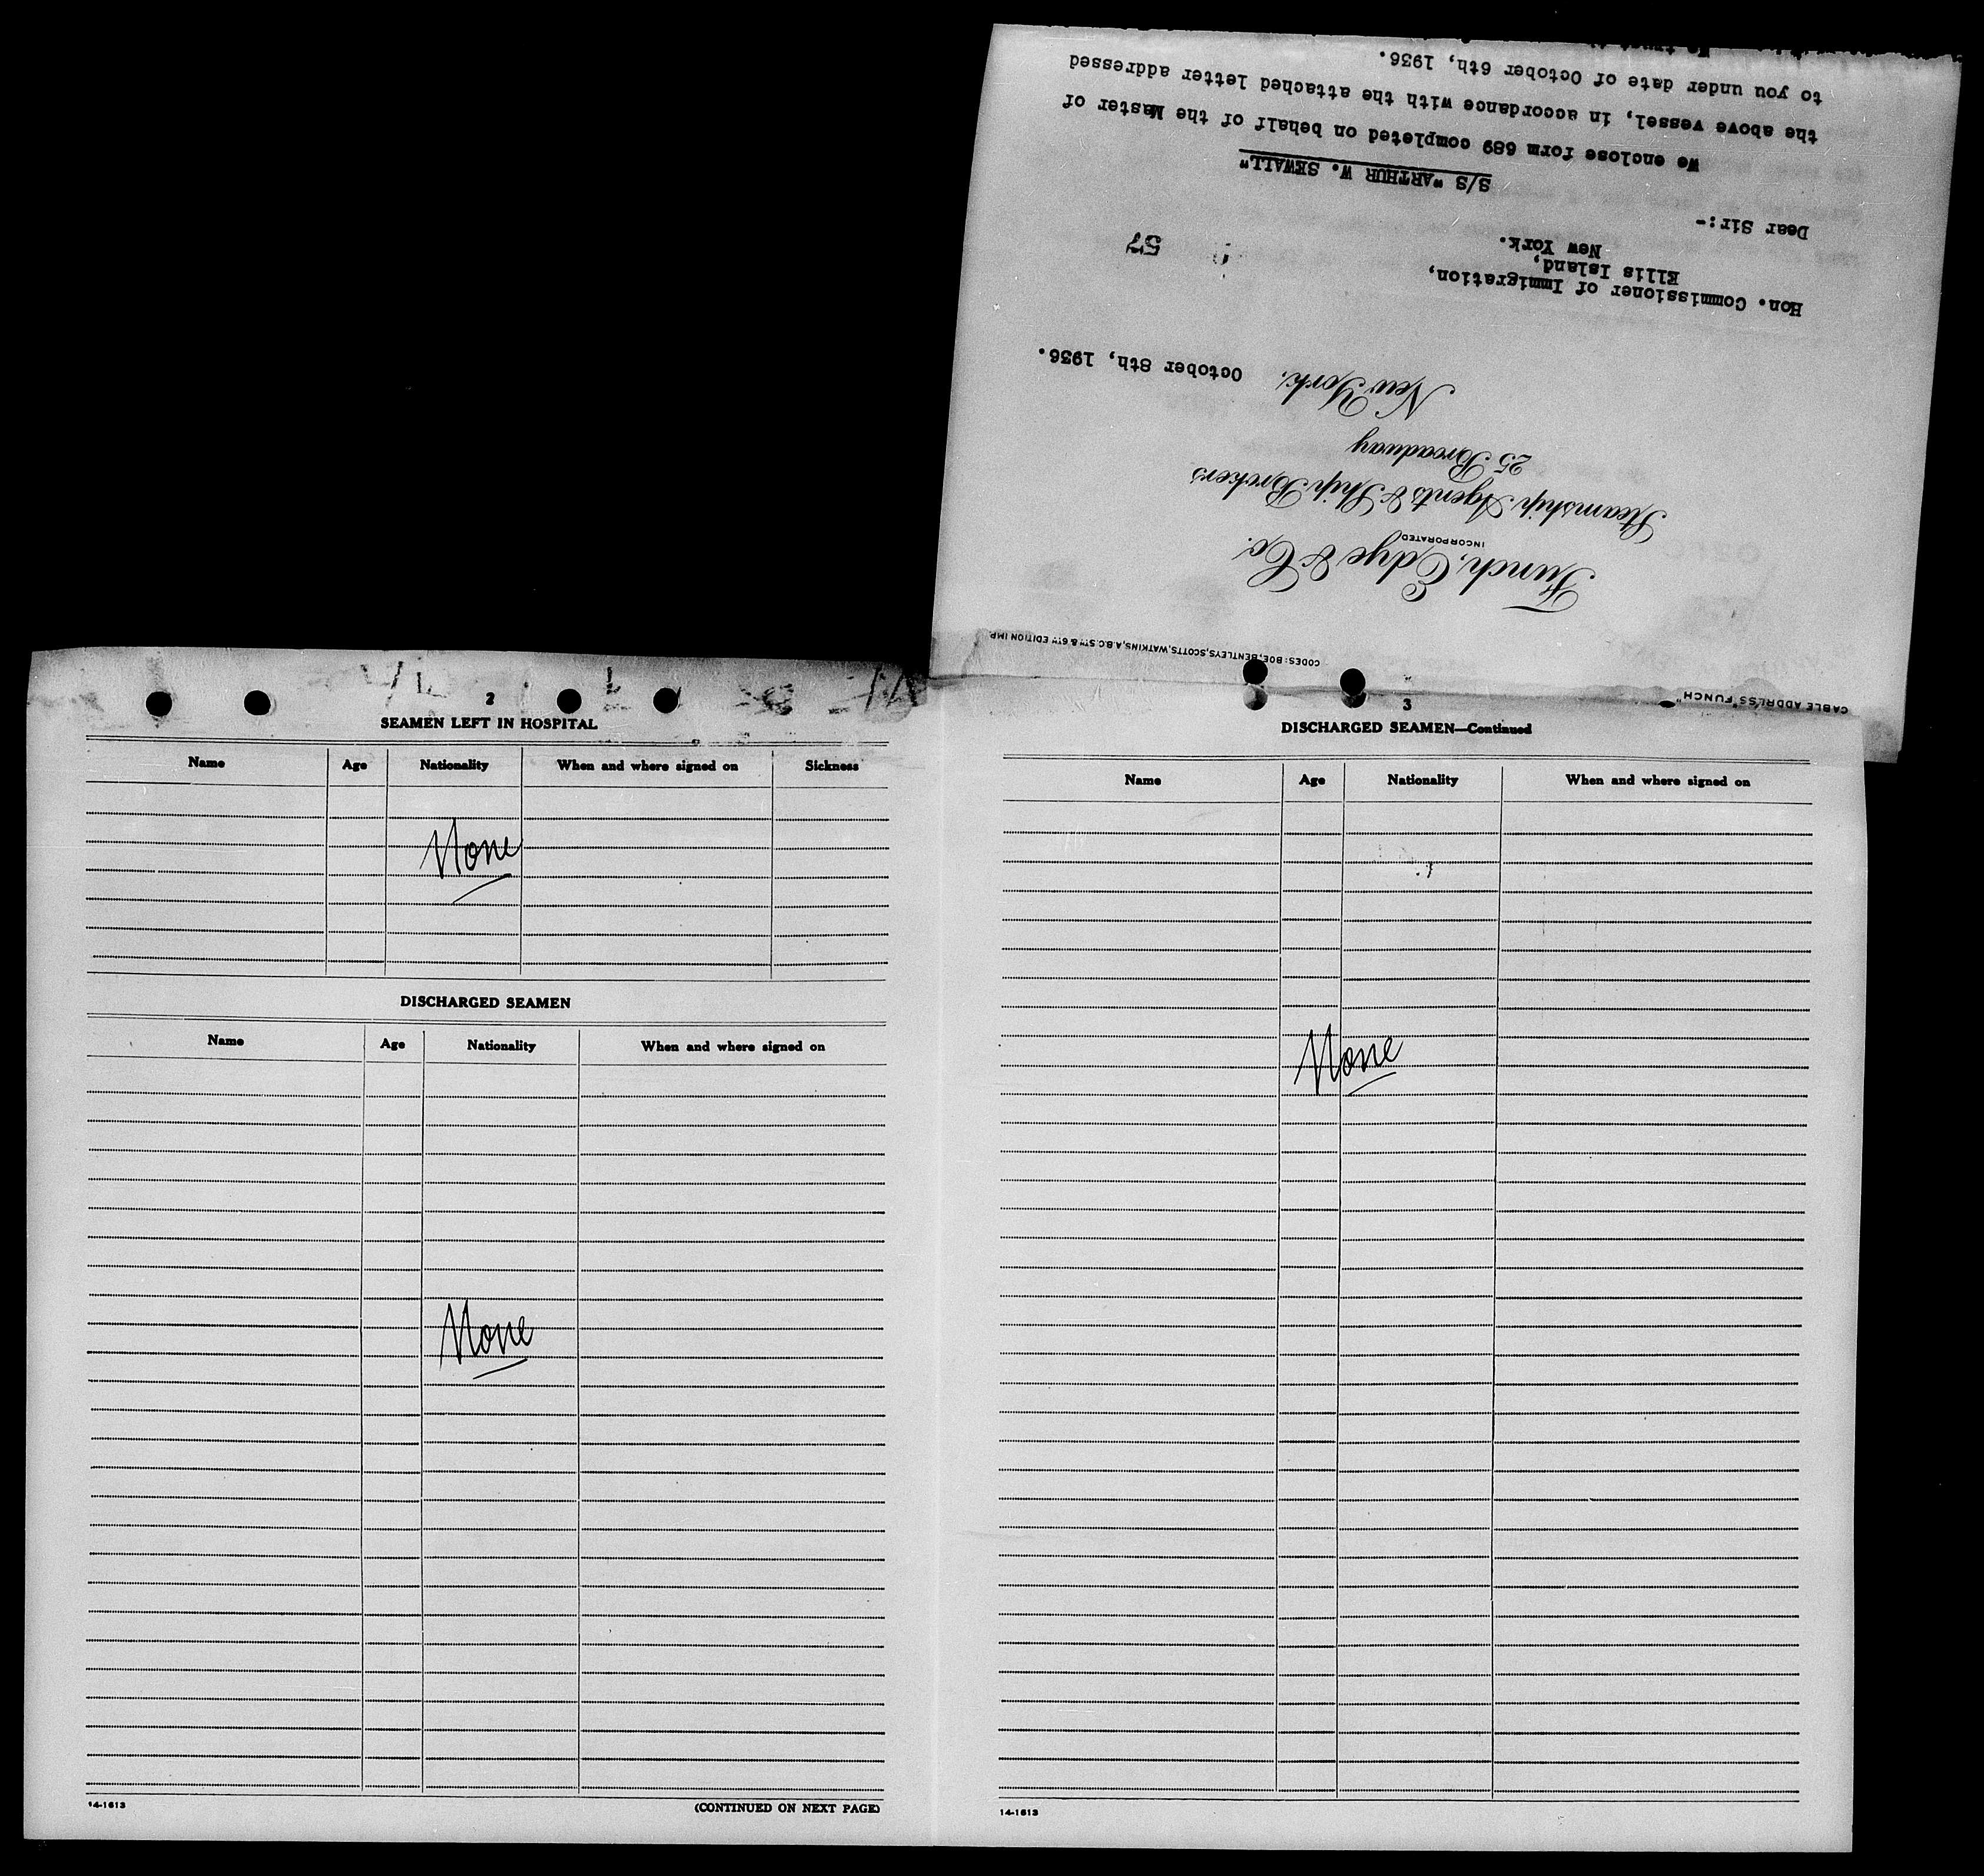 CABLE ADDRESS "FUNCH"
CODES: BOE, BENTLEYS, SCOTTS, WATKINS, A.B.C. 5TH & 6TH EDITION IMP
Funch, Edye & Co.
INCORPORATED
Steamship Agents & Ship Brokers
25 Broadway
New York, October 8th, 1936.
Hon. Commissioner of Immigration,
Ellis Island,
New York.
57
Dear Sir:-
S/S "ARTHUR W. SEWALL"
We enclose form 689 completed on behalf of the Master of
the above vessel, in accordance with the attached letter addressed
to you under date of October 6th, 1936.
2
SEAMEN LEFT IN HOSPITAL
Name Age Nationality When and where signed on Sickness
None
DISCHARGED SEAMEN
Name Age Nationality When and where signed on
None
14-1613
(CONTINUED ON NEXT PAGE)
3
DISCHARGED SEAMEN—Continued
Name Age Nationality When and where signed on
None
14-1613